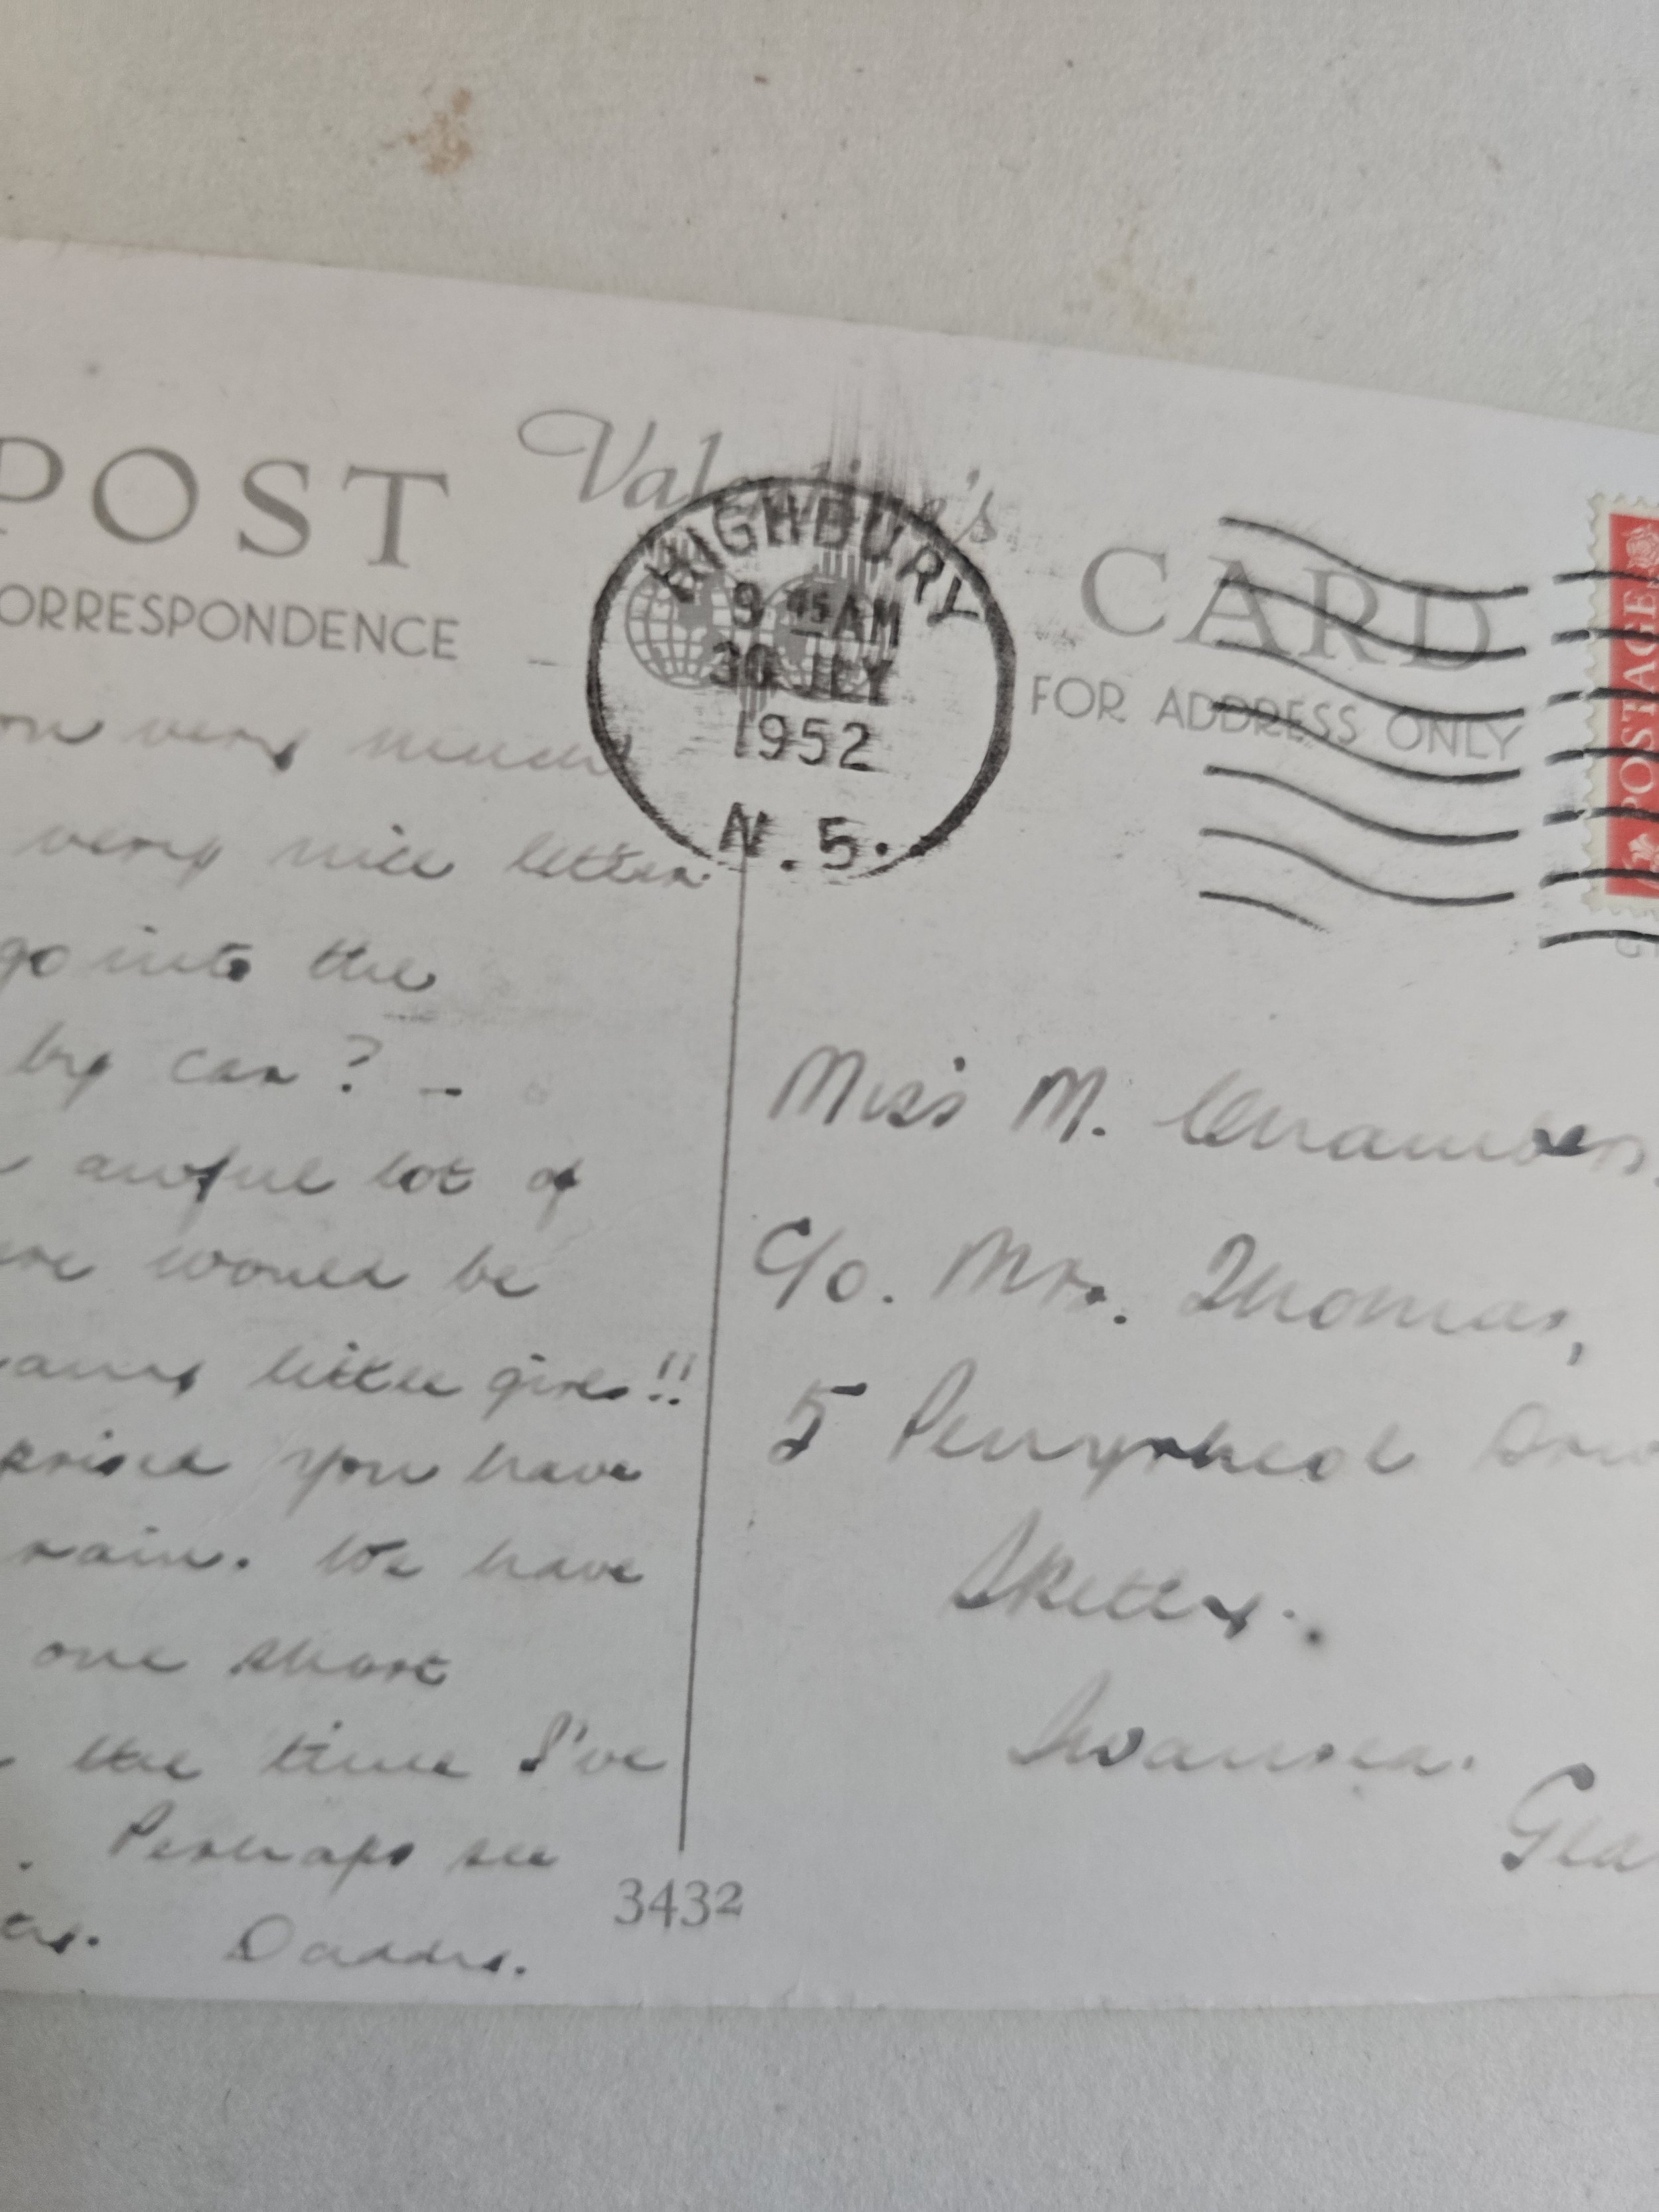 POST Valentine's CARD
CORRESPONDENCE
FOR ADDRESS ONLY
HIGHBURY
9 45 AM
30 JLY
1952
N. 5.
POSTAGE
very much
very nice letter.
go into the
big car? -
awful lot of
would be
little girls!!
you have
rain. We have
one short
the time I've
. Perhaps see
Daddy.
3432
Miss M. Chambers,
C/o. Mrs. Thomas,
5 Penyrheol
Sketty.
Swansea.